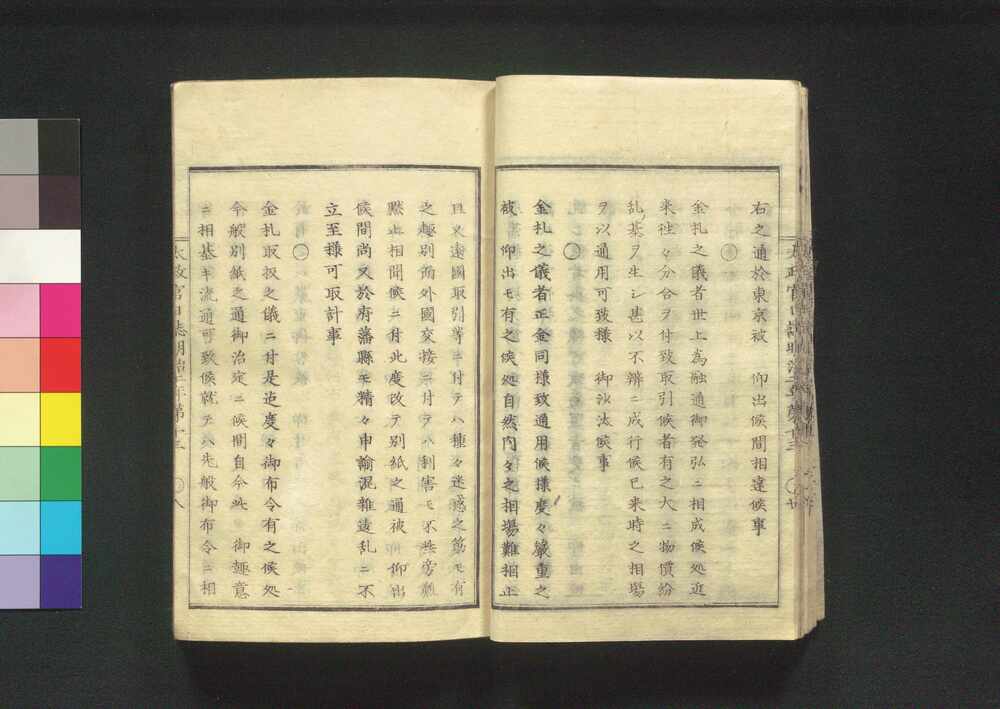 右之通於東京被　仰出候間相達候事
○
金札之儀者世上為融通御発弘ニ相成候処近
来往々分合ヲ付致取引候者有之大ニ物價紛
乱ノ基ヲ生シ甚以不辨ニ成行候已来時之相場
ヲ以通用可致様　御沙汰候事
○
金札之儀者正金同様致通用候様度々嚴重之
被　仰出モ有之候処自然内々之相場難相止
且又遠國取引等ニ付テハ種々迷惑之筋モ有
之趣別而外國交接ニ付テハ利害モ不少旁難
黙止相聞候ニ付此度改テ別紙之通被　仰出
候間尚又於府藩縣モ精々申諭混雜違乱ニ不
立至様可取計事
○
金札取扱之儀ニ付是迠度々御布令有之候処
今般別紙之通御治定ニ候間自今此　御趣意
ニ相基キ流通可致候就テハ先般御布令ニ相
太政官日誌明治二年第十三　○八